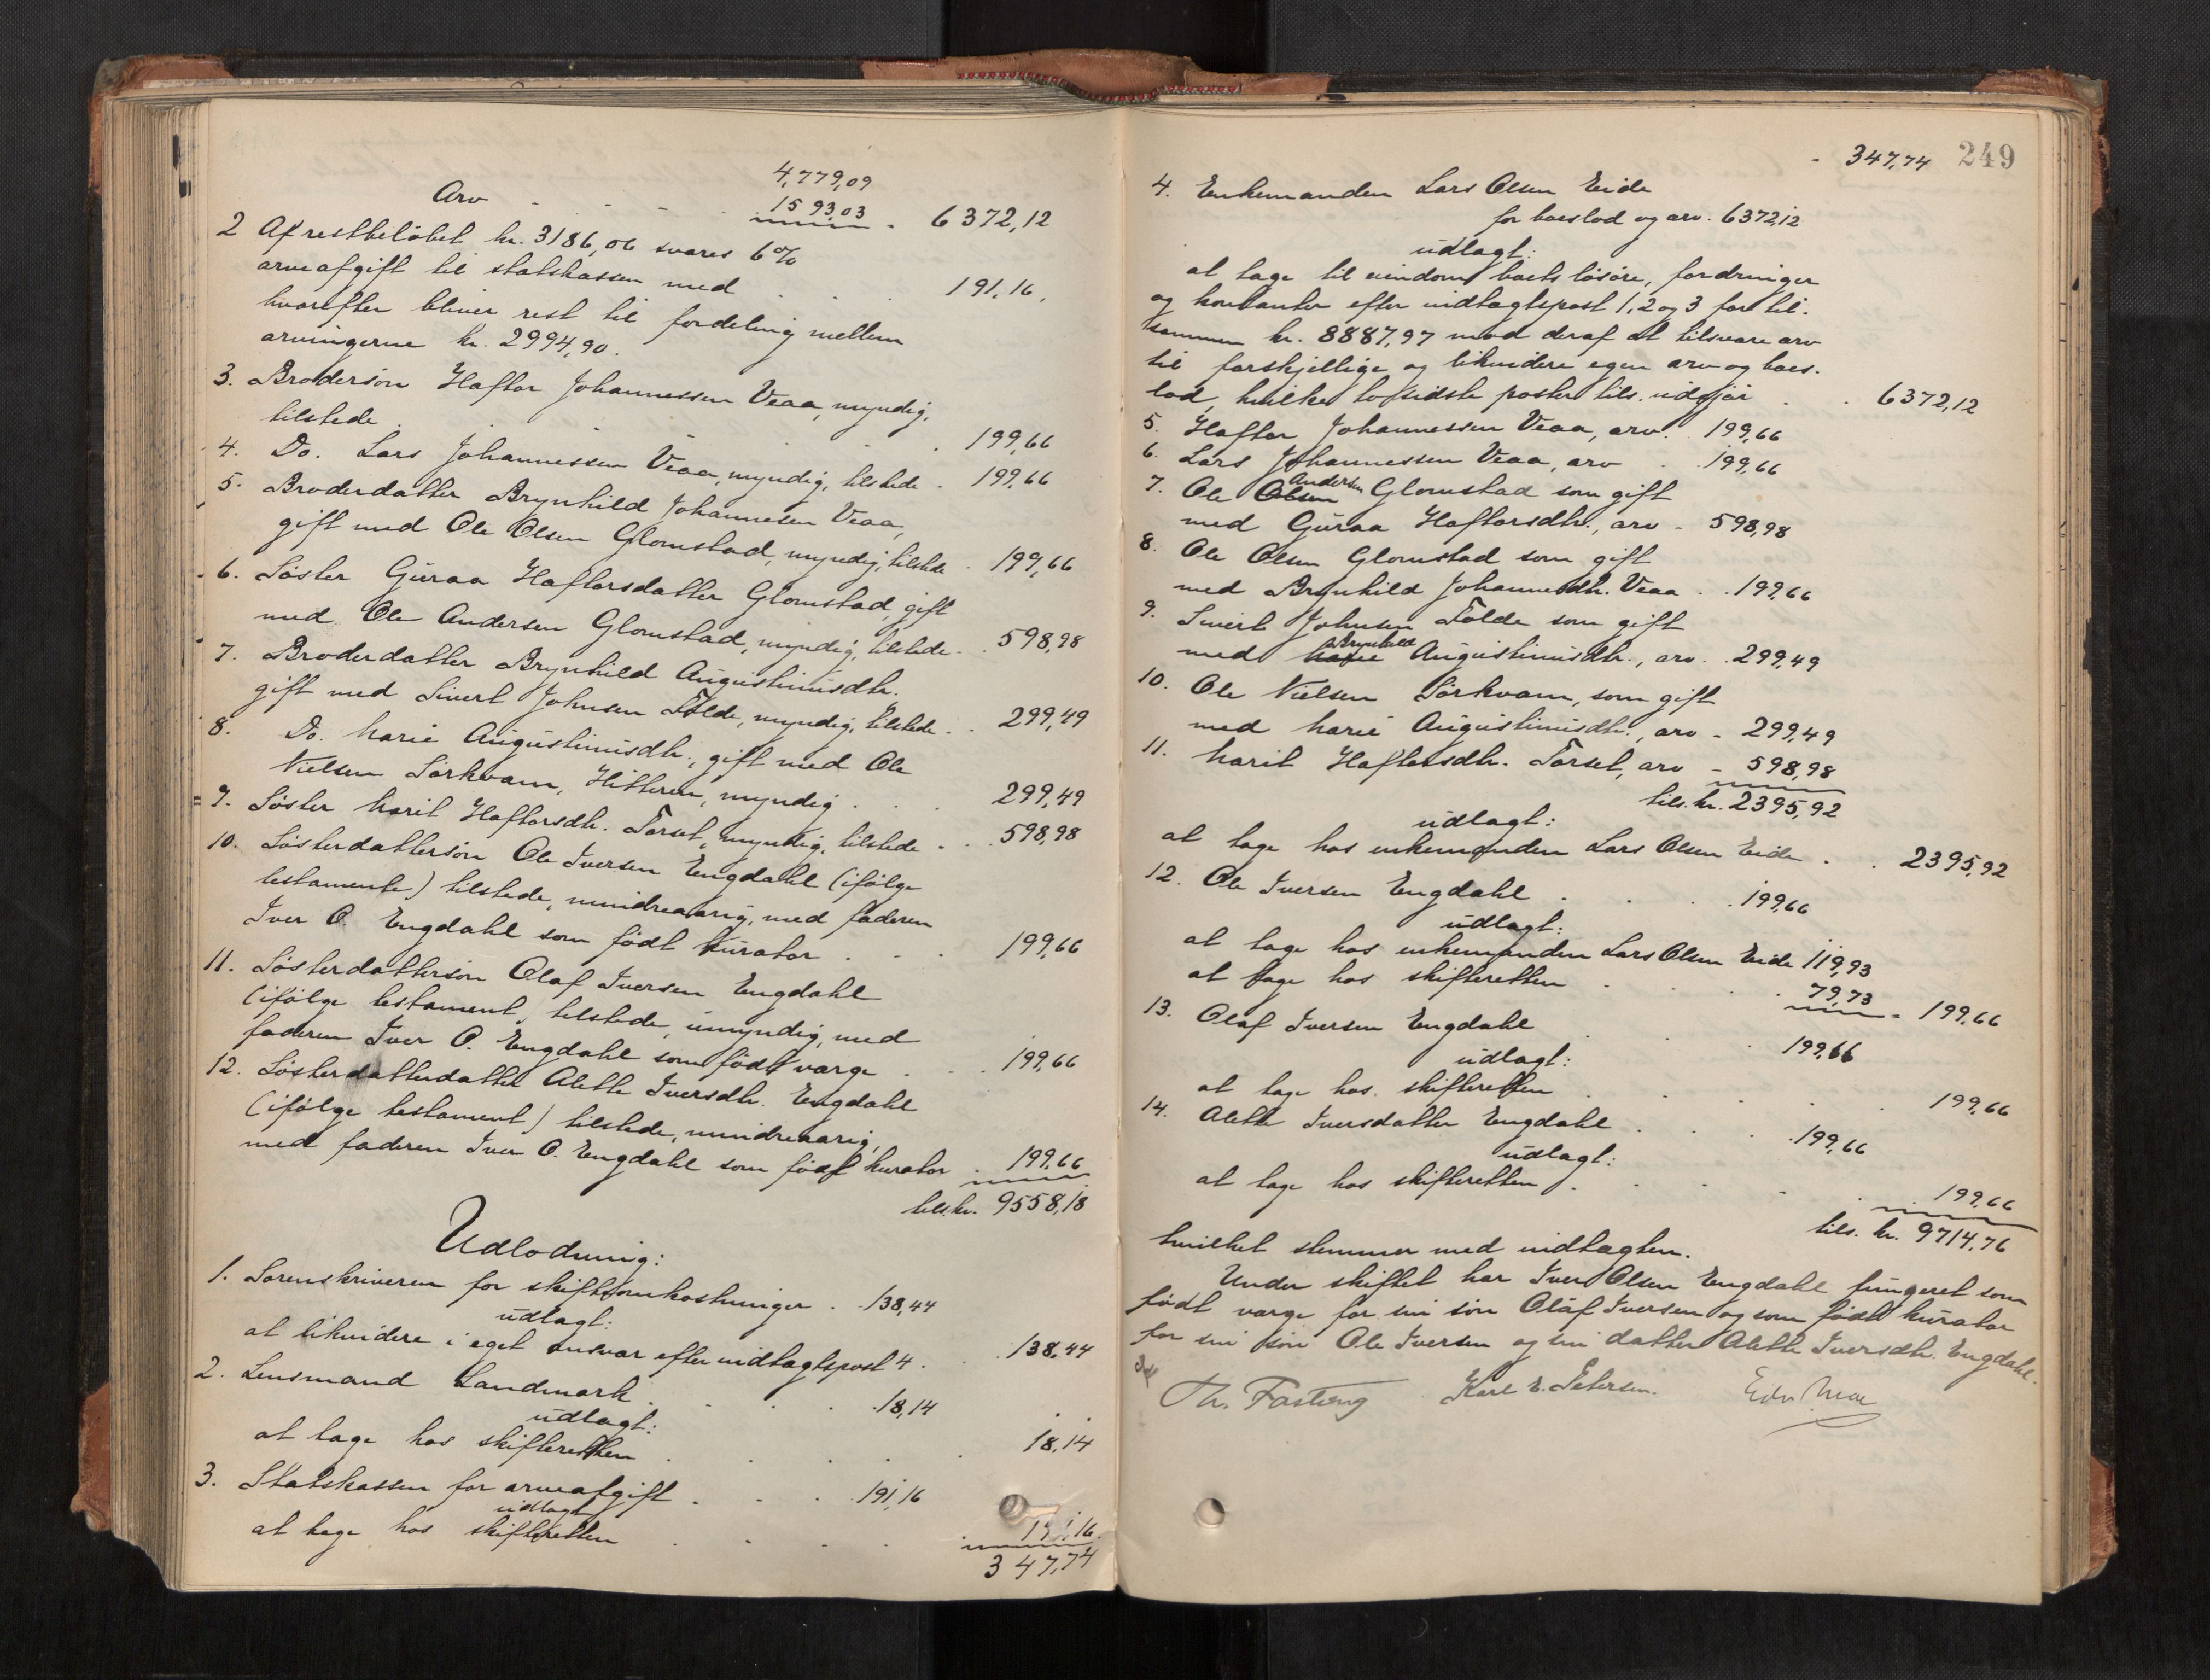 4,779,09
Arv . . . . 1593,03 . 6372,12
2 Af restbeløbet kr. 3186,06 svares 6%
arveafgift til statskassen med . . . 191,16,
hvorefter bliver rest til fordeling mellem
arvingerne kr. 2994,90.
3. Brodersøn Haftor Johannessen Veaa, myndig,
tilstede . . . . . 199,66
4. Do. Lars Johannessen Veaa, myndig, tilstede . 199,66
5. Broderdatter Brynhild Johannesen Veaa,
gift med Ole Olsen Glomstad, myndig, tilstede . 199,66
6. Søster Guraa Haftorsdatter Glomstad, gift
med Ole Andersen Glomstad, myndig, tilstede . . 598,98
7. Broderdatter Brynhild Augustinusdtr.
gift med Sivert Johnsen Folde, myndig, tilstede . . 299,49
8. Do. Marie Augustinusdtr., gift med Ole
Nielsen Sørkvam, Hitteren, myndig . . . 299,49
9. Søster Marit Haftorsdtr. Torset, myndig, tilstede . . . 598,98
10. Søsterdattersøn Ole Iversen Engdahl (ifølge
testamente) tilstede, mindreaarig, med faderen
Iver O. Engdahl som født kurator . . . 199,66
11. Søsterdattersøn Olaf Iversen Engdahl
(ifølge testament) tilstede, umyndig, med
faderen Iver O. Engdahl som født værge . . . 199,66
12. Søsterdatterdatter Alette Iversdtr. Engdahl
(ifølge testament) tilstede, mindreaarig,
med faderen Iver O. Engdahl som født kurator . 199,66
tils. kr. 9558,18
Udlodning:
1. Sorenskriveren for skifteomkostninger . . 138,44
udlagt:
at likvidere i eget ansvar efter indtægtspost 4 . . . 138,44
2. Lensmand Landmark . . . . 18,14
udlagt:
at tage hos skifteretten . . . . 18,14
3. Statskassen for arveafgift . . . 191,16
udlagt
at tage hos skifteretten . . . . 191,16.
347,74
- 347,74 249
4. Enkemanden Lars Olsen Eide
for boeslod og arv . 6372,12
udlagt:
at tage til eiendom boets løsøre, fordringer
og kontanter efter indtægtspost 1, 2 og 3 for til-
sammen kr. 8887,97 mod deraf at tilsvare arv
til forskjellige og likvidere egen arv og boes-
lod, hvilke to sidste poster tils. udgjør . . 6372,12
5. Haftor Johannessen Veaa, arv. . 199,66
6. Lars Johannessen Veaa, arv . . 199,66
7. Ole Olsen Andersen Glomstad som gift
med Guraa Haftorsdtr., arv - 598,98
8. Ole Olsen Glomstad som gift
med Brynhild Johannesdtr. Veaa . . 199,66
9. Sivert Johnsen Folde som gift
med Marie Brynhild Augustinusdtr., arv . . 299,49
10. Ole Nielsen Sørkvam, som gift
med Marie Augustinusdtr., arv - 299,49
11. Marit Haftorsdtr. Torset, arv - 598,98
tils. kr. 2395,92
udlagt:
at tage hos enkemanden Lars Olsen Eide . . 2395,92
12. Ole Iversen Engdahl . . . . 199,66
udlagt:
at tage hos enkemanden Lars Olsen Eide 119,93
at tage hos skifteretten . . . . 79,73 - 199,66
13. Olaf Iversen Engdahl . . . 199,66
udlagt:
at tage hos skifteretten . . . . 199,66
14. Alette Iversdatter Engdahl . . . . 199,66
udlagt:
at tage hos skifteretten . . . . 199,66
tils. kr. 9714,76
hvilket stemmer med indtægten.
Under skiftet har Iver Olsen Engdahl fungeret som
født værge for sin søn Olaf Iversen og som født kurator
for sin søn Ole Iversen og sin datter Alette Iversdtr. Engdahl.
Th. Fasting Karl E. Petersen. Edv. Moe